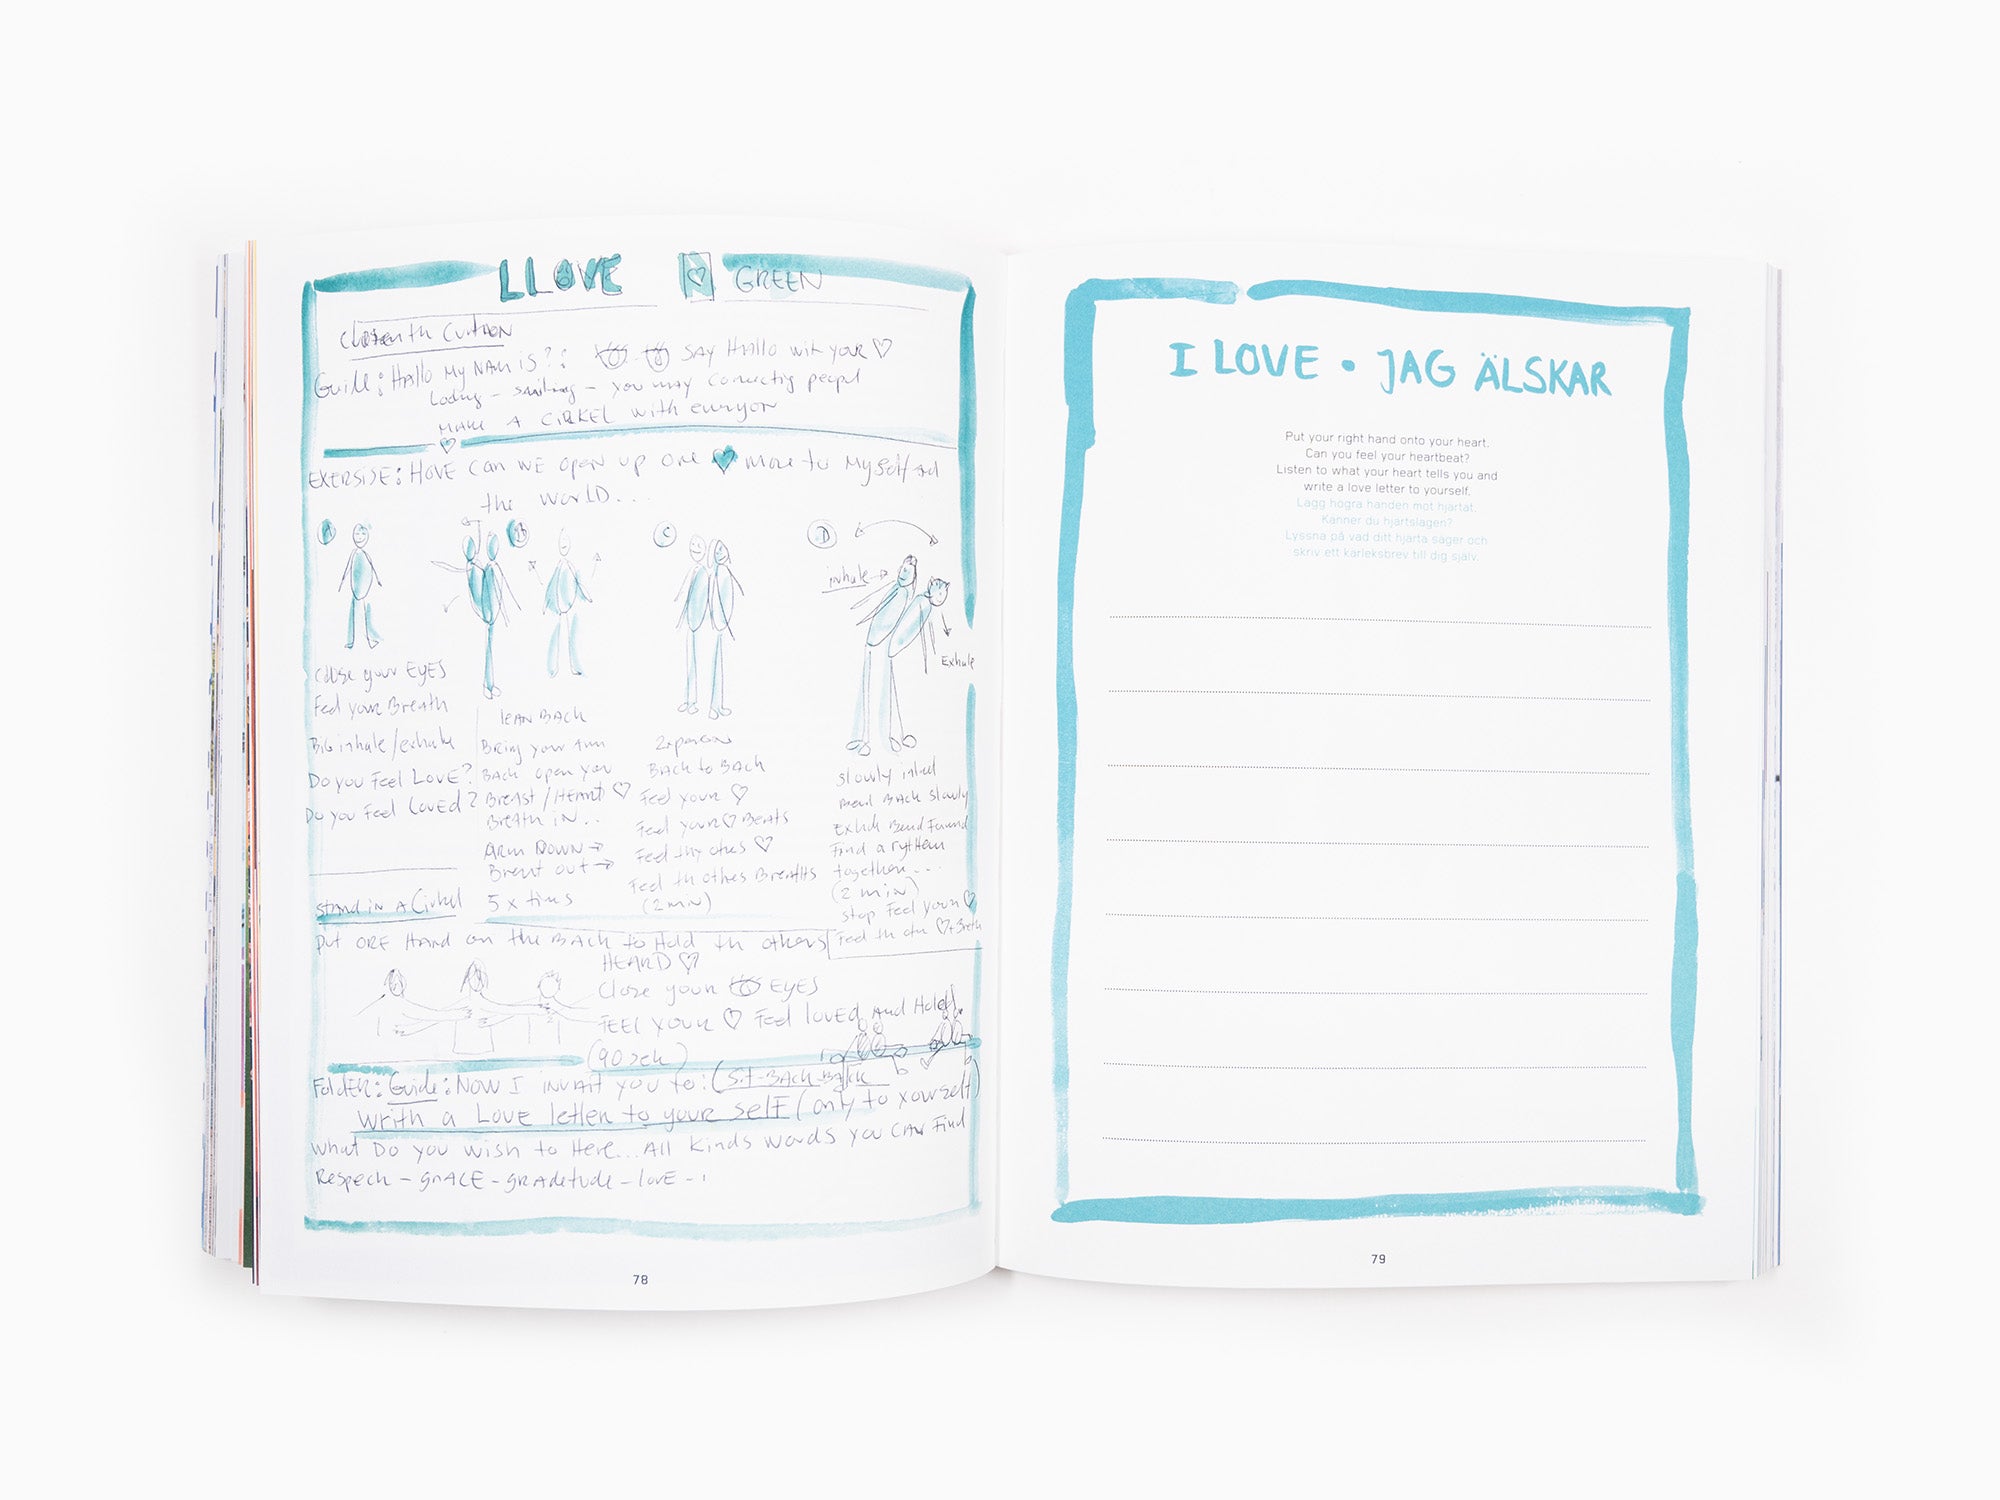 LLOVE GREEN
Guide: Hallo My NAM is?: SAY HAllo with your
smiling - you may connecting peopel
MAKE A CiRKEL with everyon
EXERSISE: HOVE CAN WE OPEN UP ORE more to Myself and
the WORLD...
A
B
C
D
inhale
Exhale
Close your EYES
Feel your Breath
Big inhale/exhale
Do you Feel LOVE?
Do you Feel Loved?
stand in A Cirkel
lEAN BACK
Bring your Arm
BACK open you
Breast/HEART
BREATH iN..
ARM DOWN
Breat out
5 x times
2 person
BACK to BACK
Feel your
Feel your Beats
Feel the others
Feel th others Breaths
(2 min)
slowly inhal
Bend BACK slowly
Exhale Bend Forward
Find a rythem
together...
(2 min)
stop Feel your
Feel th oth + Breth
put ORE HAnd on the BACk to Hold th others
HEARD
Close your EYES
FEEL YOUR Feel lovED And Hold
(90 sek)
FoldER: Guide: NOW I invait you to: (Sit-BACk-BAck
writh a Love letter to your SELF (only to yourself)
what Do you wish to Here...All kinds words you CAN Find
Respech - grACE - grAdetude - lovE -
78
I LOVE • JAG ÄLSKAR
Put your right hand onto your heart.
Can you feel your heartbeat?
Listen to what your heart tells you and
write a love letter to yourself.
Lägg högra handen mot hjärtat.
Känner du hjärtslagen?
Lyssna på vad ditt hjärta säger och
skriv ett kärleksbrev till dig själv.
79